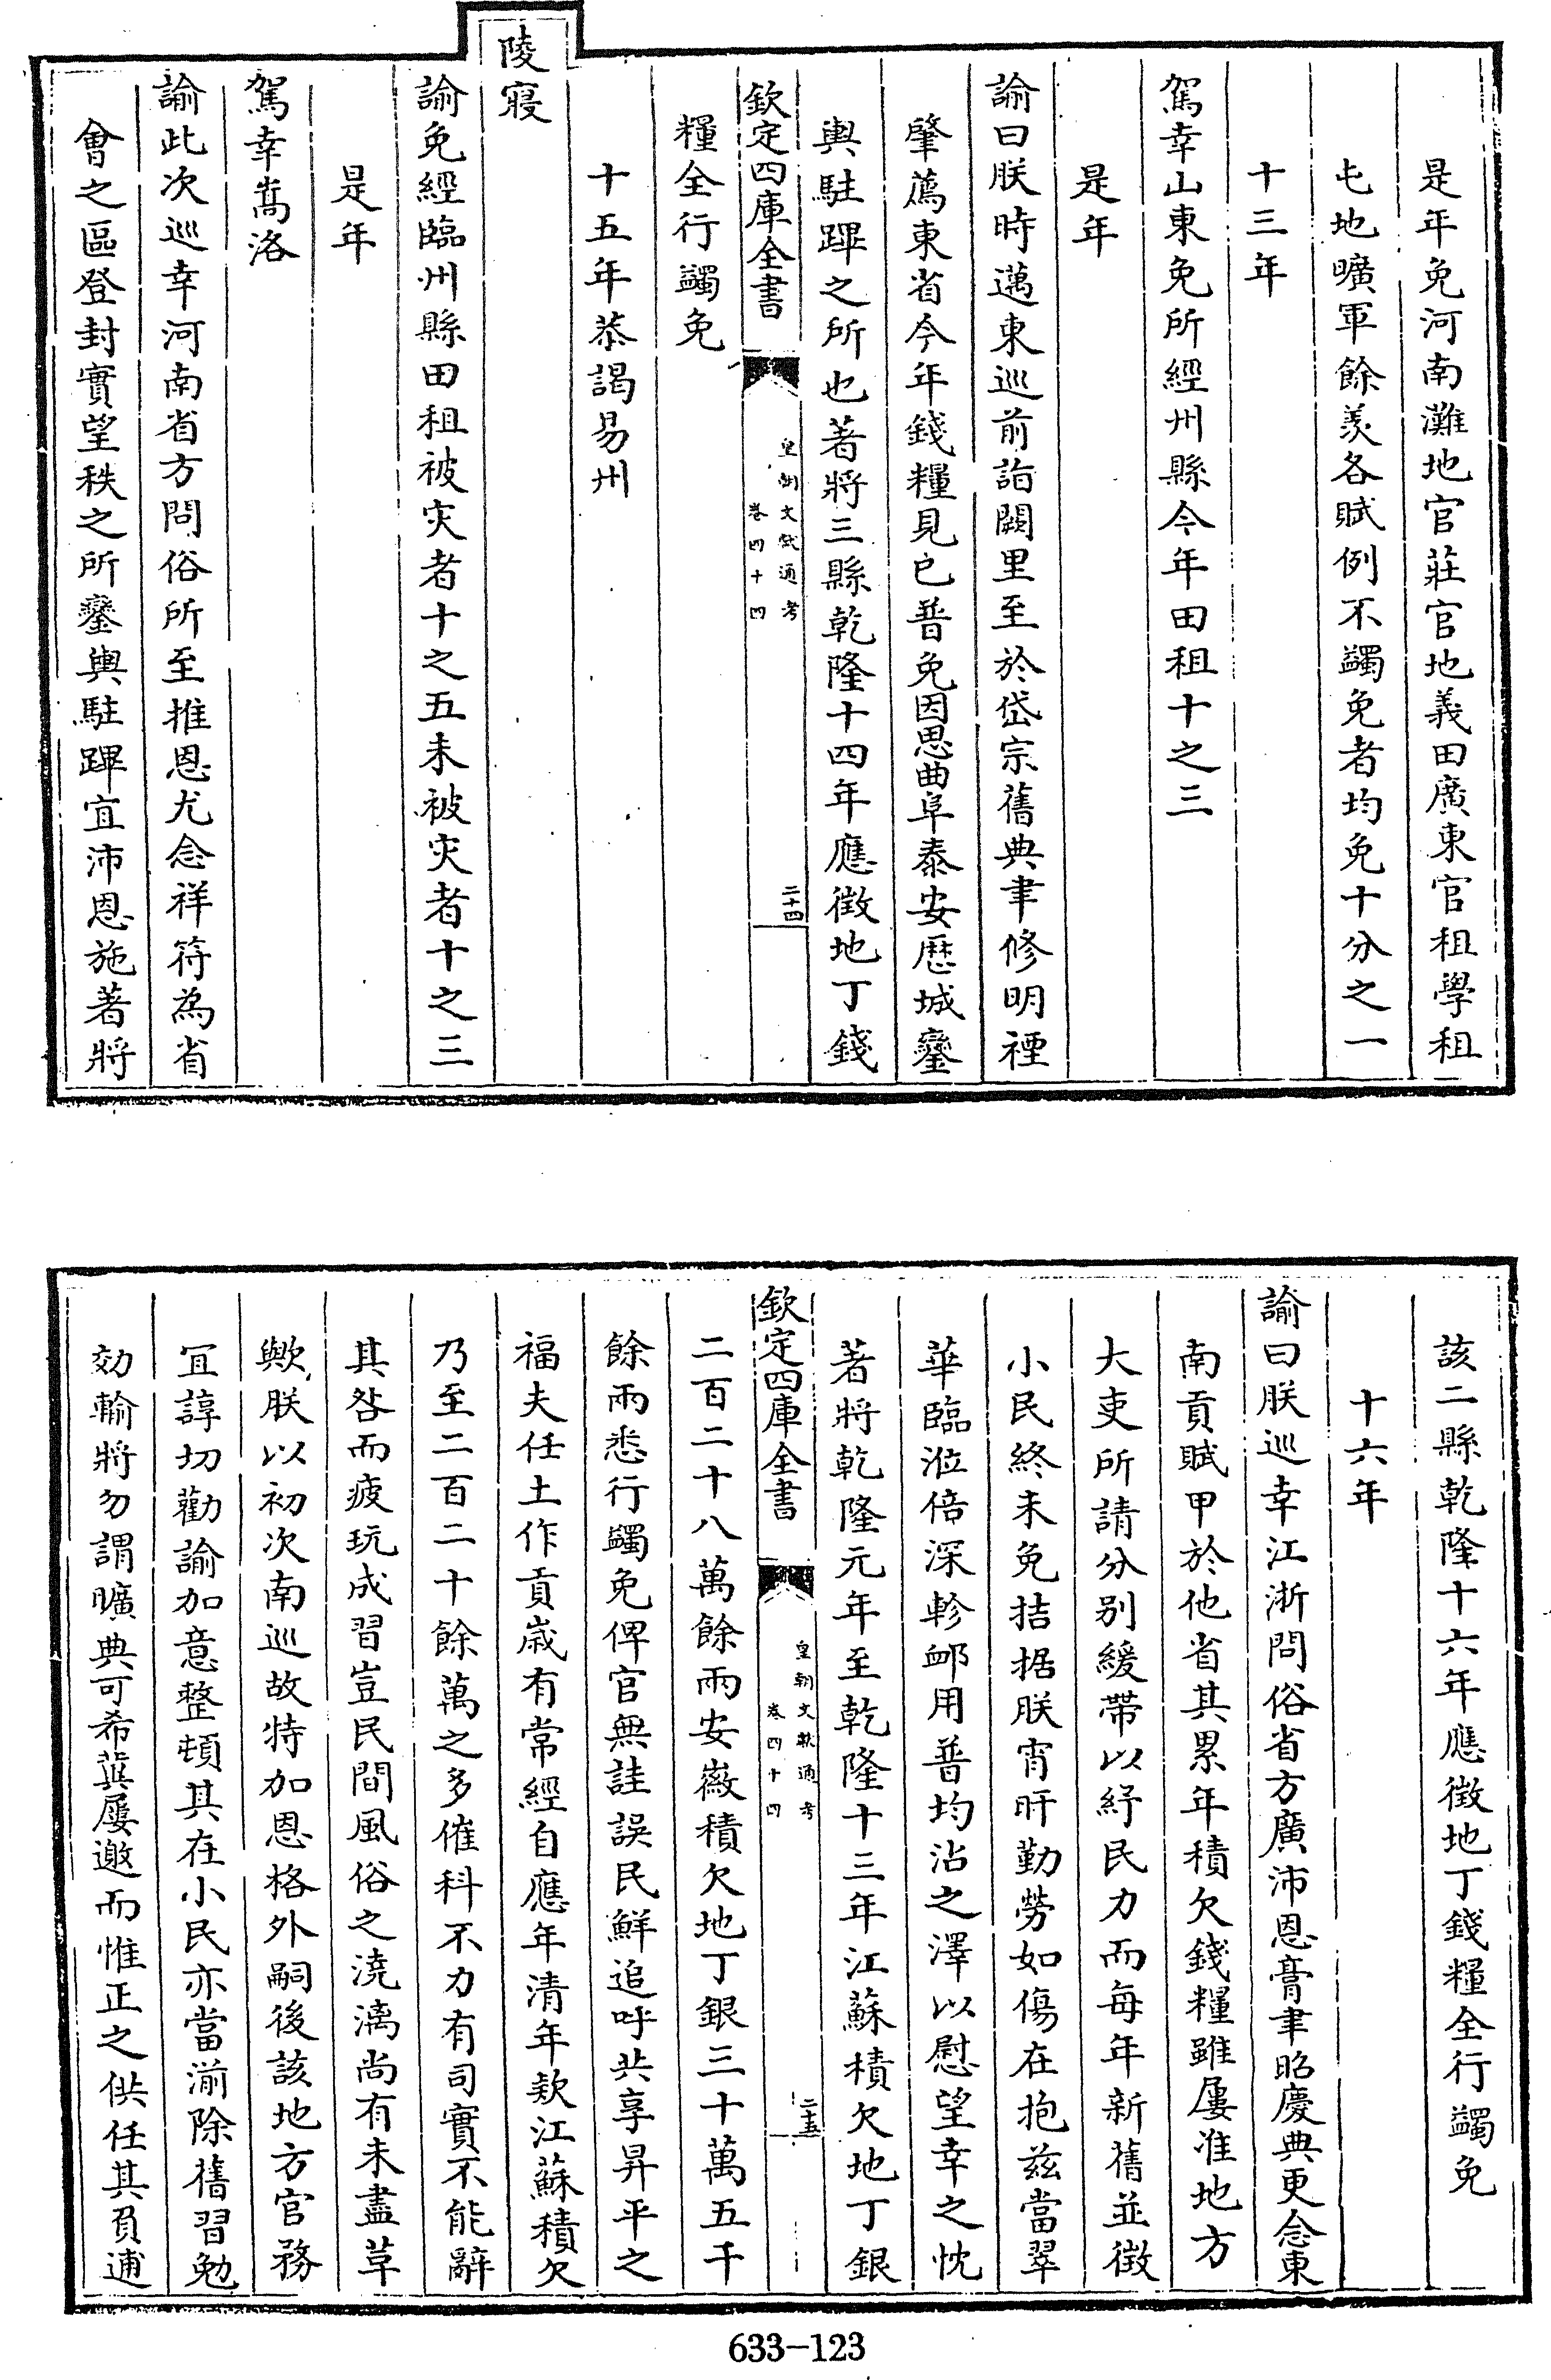 是年免河南灘地官莊官地義田廣東官租學租
屯地曠軍餘羨各賦例不蠲免者均免十分之一
十三年
駕幸山東免所經州縣今年田租十之三
是年
諭曰朕時邁東巡前詣闕里至於岱宗舊典聿修明禋
肇薦東省今年錢糧見已普免因思曲阜泰安歴城鑾
輿駐蹕之所也著將三縣乾隆十四年應徵地丁錢
欽定四庫全書
皇朝文獻通考
卷四十四
二十四
糧全行蠲免
十五年恭謁易州
陵寢
諭免經臨州縣田租被灾者十之五未被灾者十之三
是年
駕幸嵩洛
諭此次巡幸河南省方問俗所至推恩尤念祥符為省
會之區登封實望秩之所鑾輿駐蹕宜沛恩施著將
該二縣乾隆十六年應徵地丁錢糧全行蠲免
十六年
諭曰朕巡幸江浙問俗省方廣沛恩膏聿昭慶典更念東
南貢賦甲於他省其累年積欠錢糧雖屢准地方
大吏所請分别緩帶以紓民力而每年新舊並徵
小民終未免拮据朕宵旰勤勞如傷在抱兹當翠
華臨涖倍深軫衈用普均沾之澤以慰望幸之忱
著將乾隆元年至乾隆十三年江蘇積欠地丁銀
欽定四庫全書
皇朝文獻通考
卷四十四
二十五
二百二十八萬餘兩安徽積欠地丁銀三十萬五千
餘兩悉行蠲免俾官無詿誤民鮮追呼共享昇平之
福夫任土作貢歲有常經自應年清年欵江蘇積欠
乃至二百二十餘萬之多催科不力有司實不能辭
其咎而疲玩成習豈民間風俗之澆漓尚有未盡革
歟朕以初次南巡故特加恩格外嗣後該地方官務
宜諄切勸諭加意整頓其在小民亦當湔除舊習勉
効輸將勿謂曠典可希冀屢邀而惟正之供任其負逋
633-123